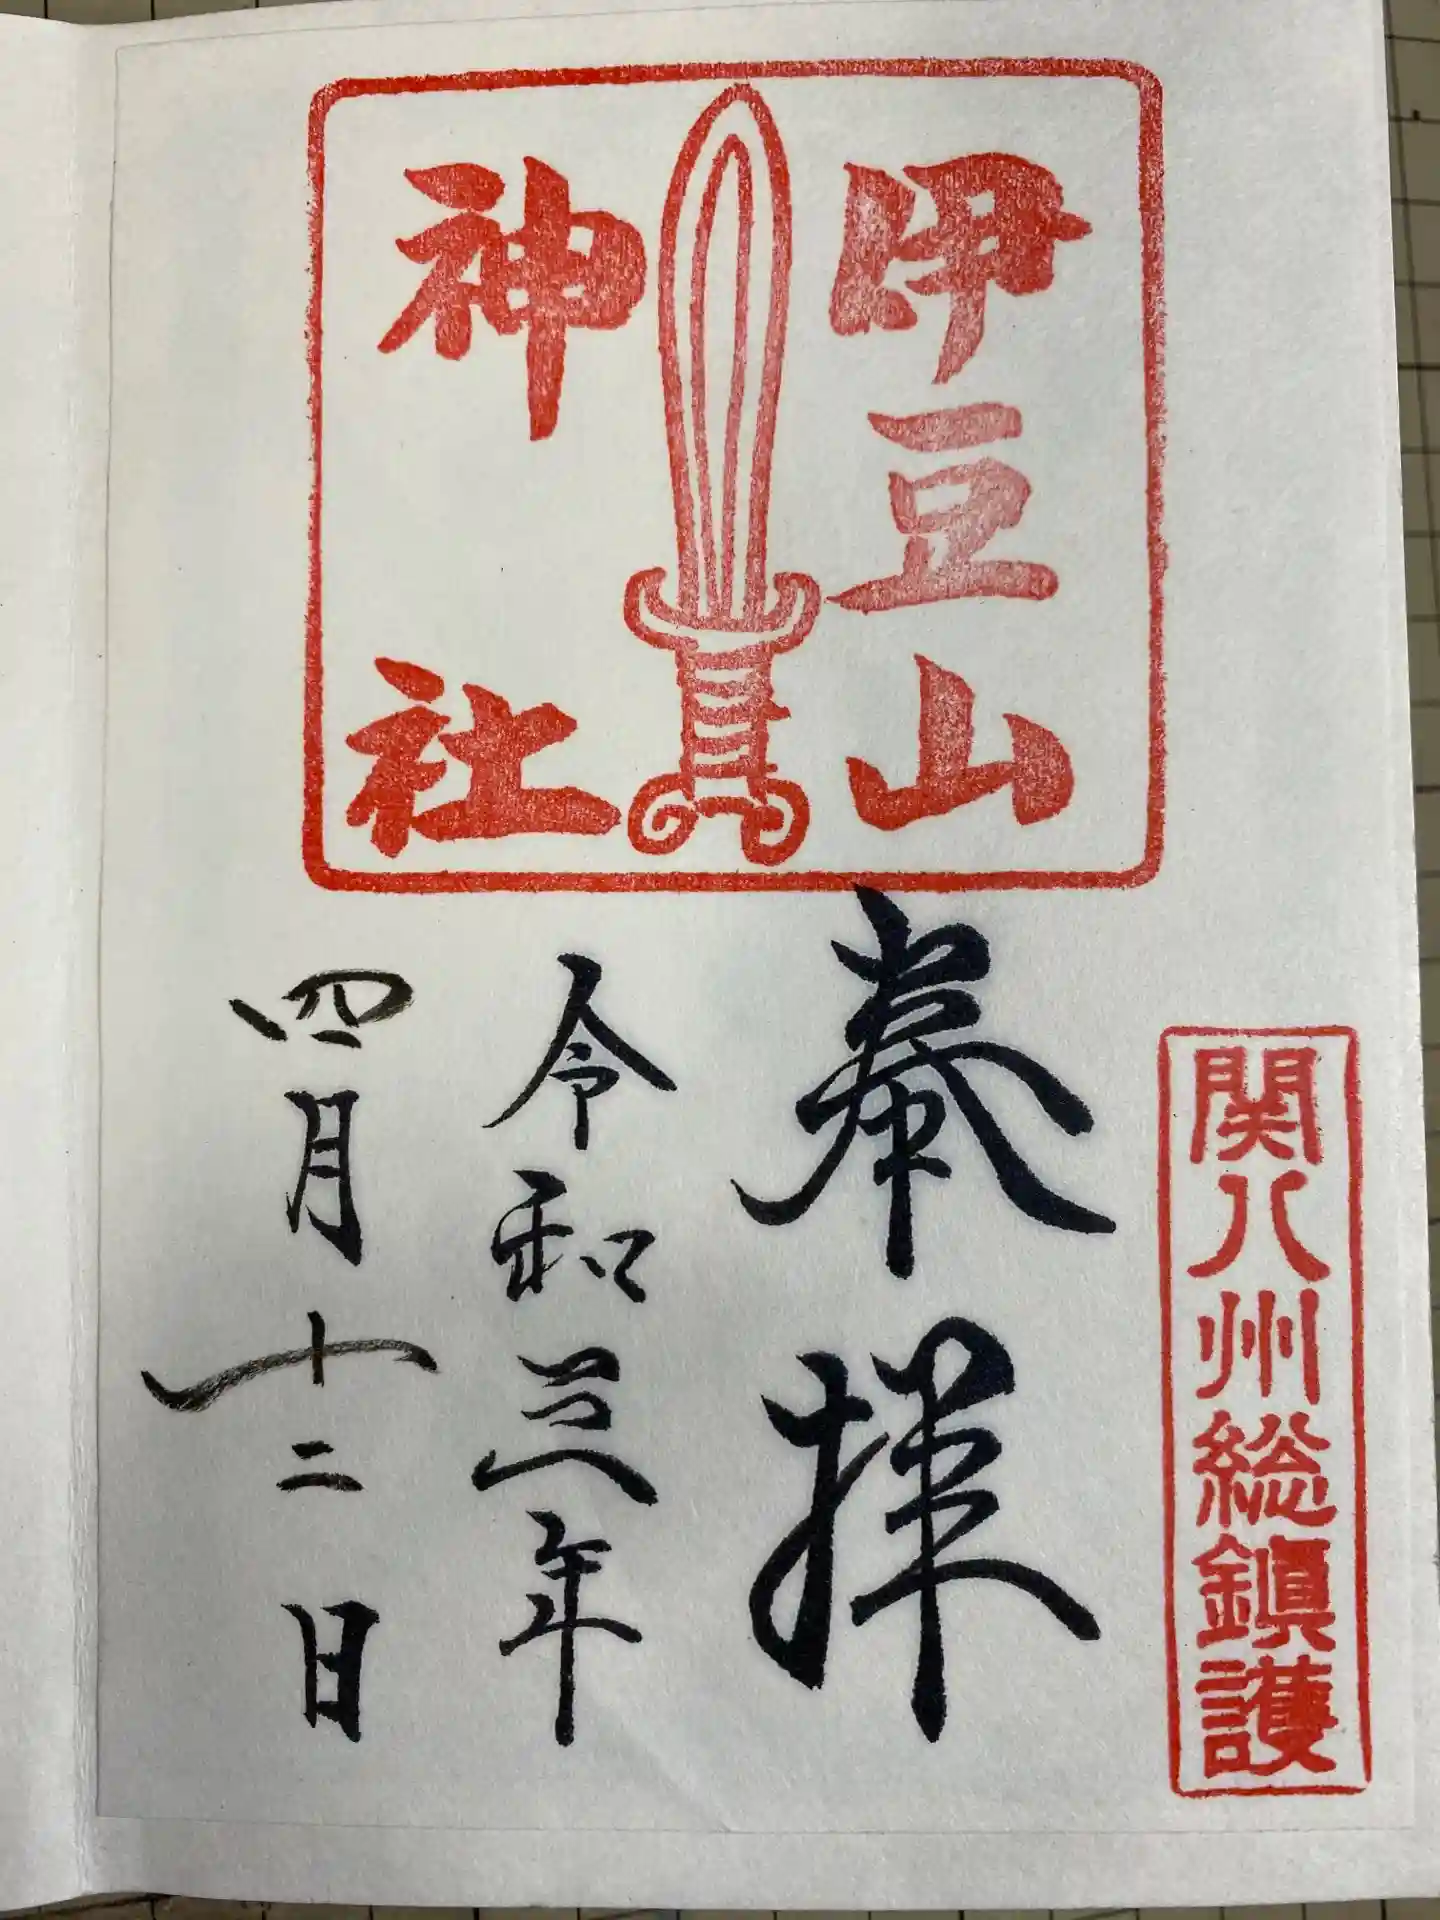 関八州総鎮護
伊豆山
神社
奉拝
令和三年
四月十二日